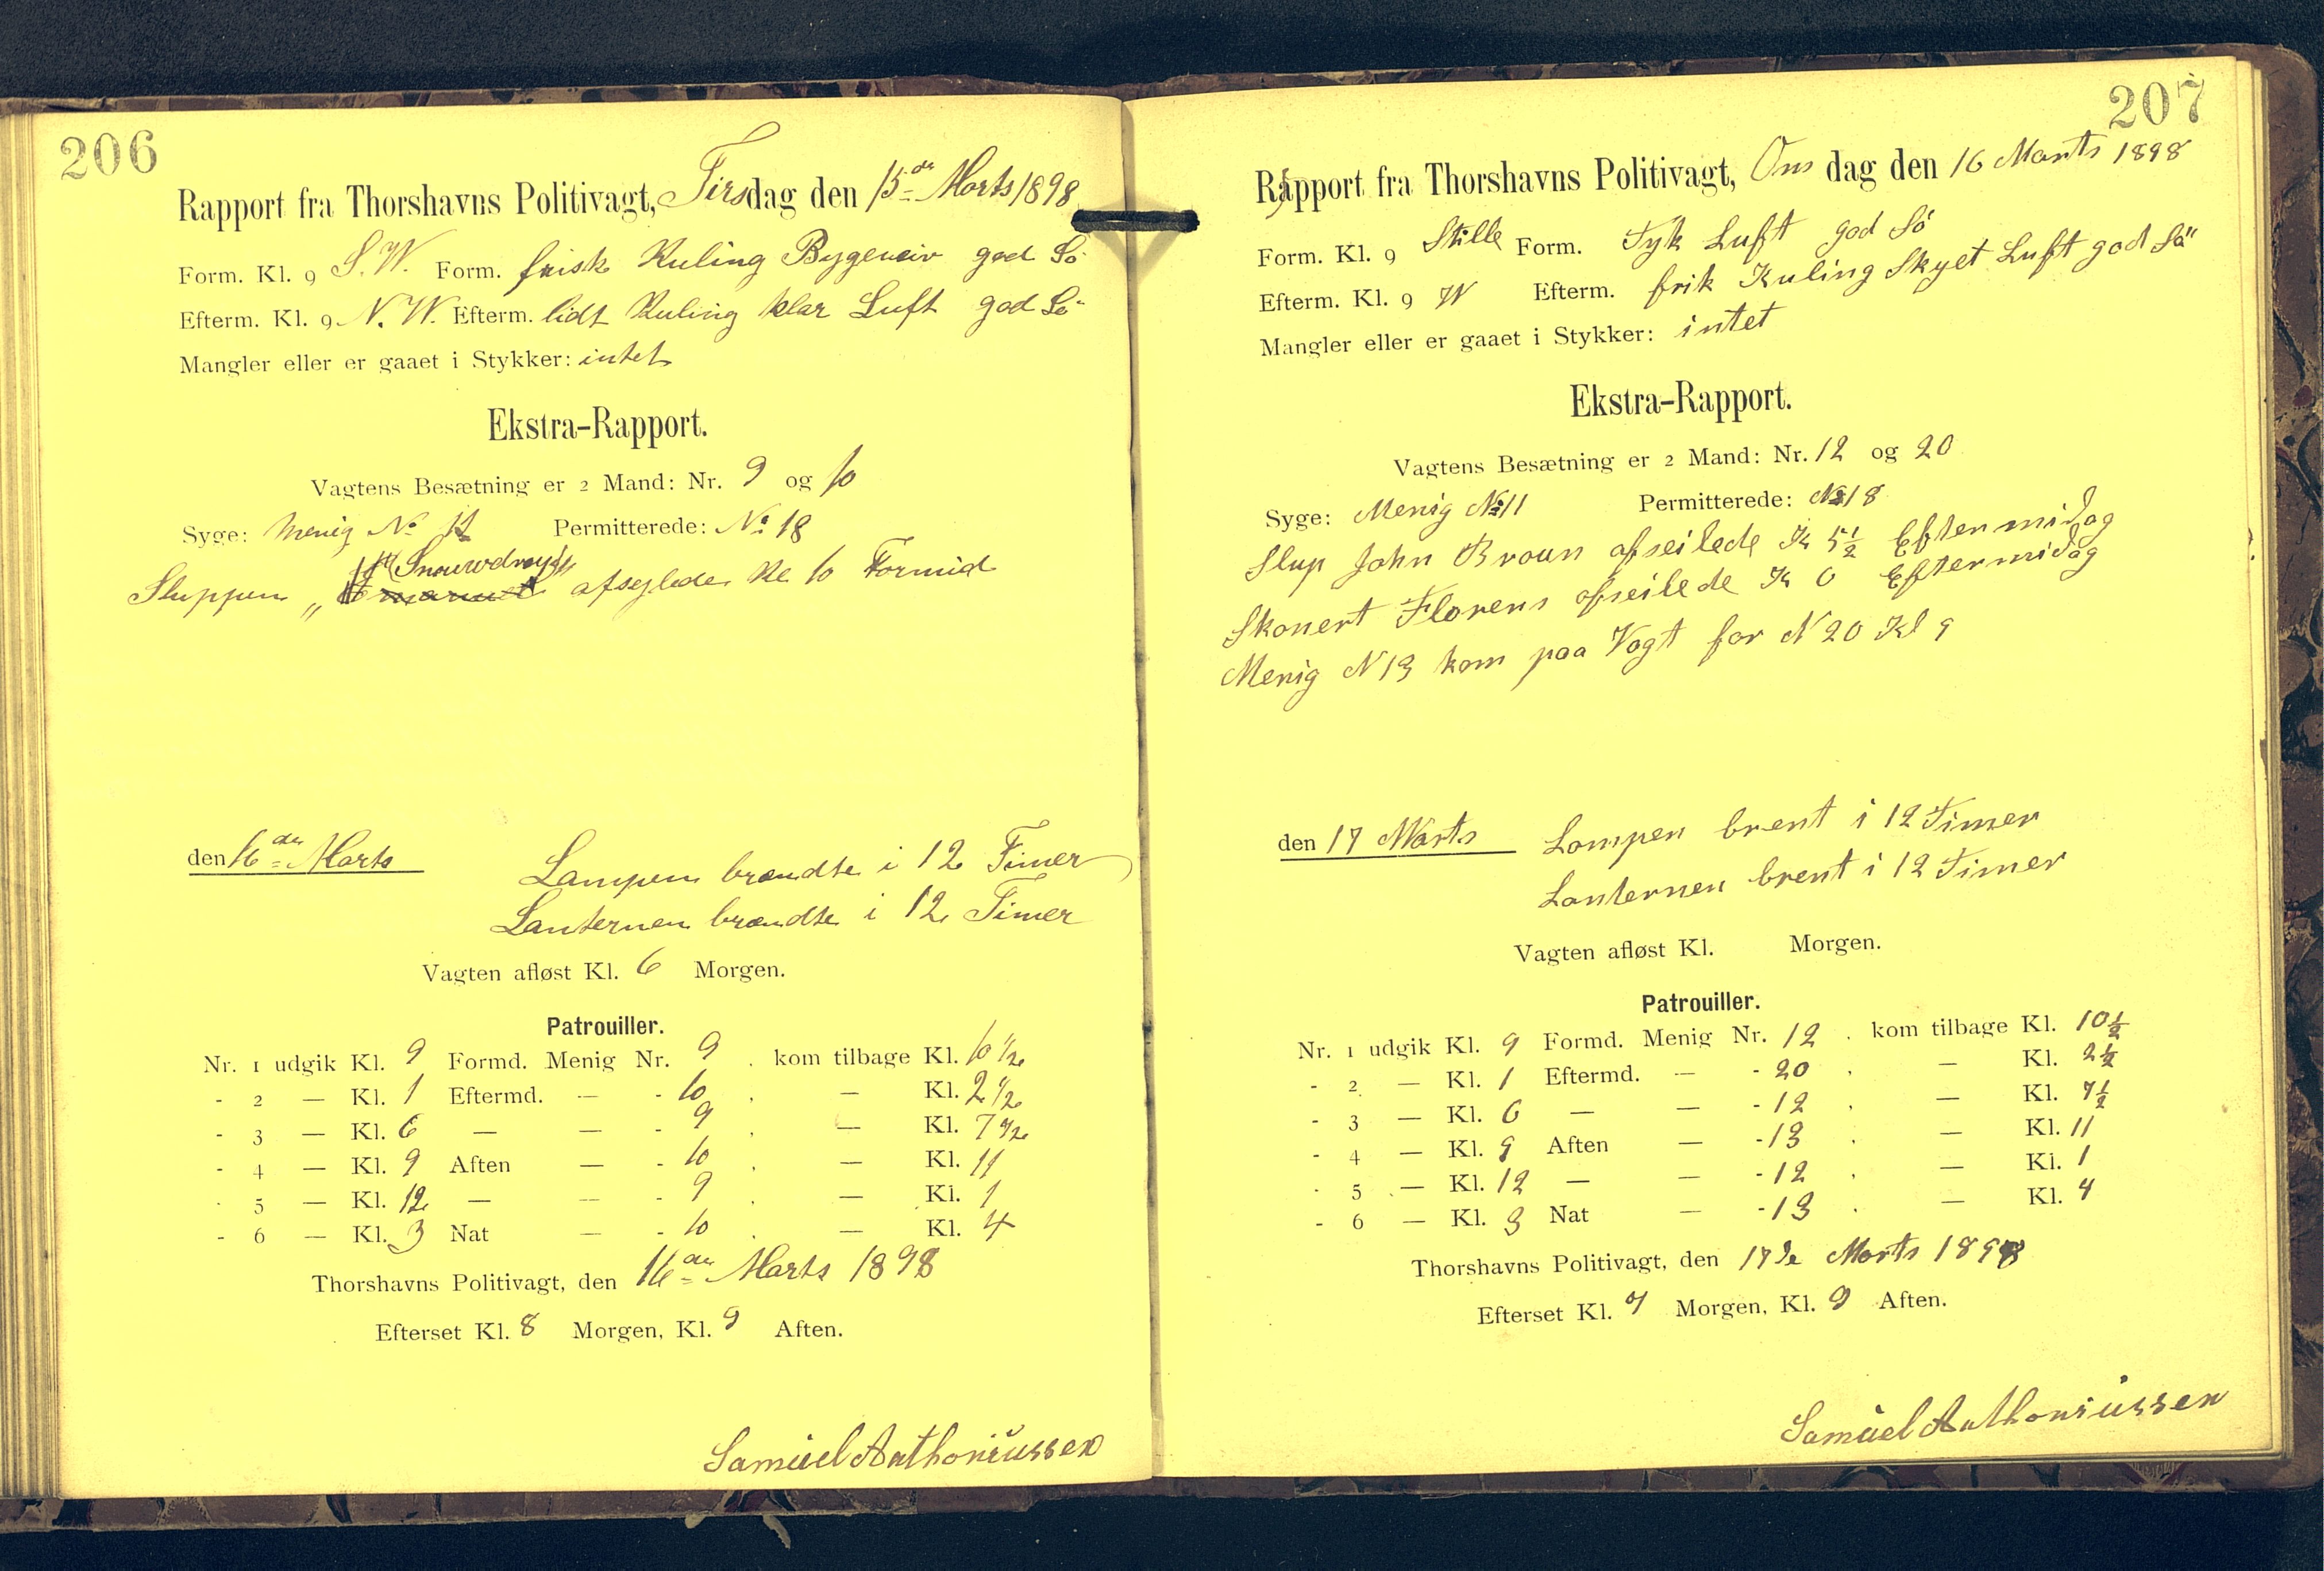 206
Rapport fra Thorshavns Politivagt, Tirsdag den 15de Marts 1898
Form. Kl. 9 S.W. Form. frisk Kuling Bygeveir god Sö
Efterm. Kl. 9 N.W. Efterm. lidt Kuling klar Luft god Sö
Mangler eller er gaaet i Stykker: intet
Ekstra-Rapport.
Vagtens Besætning er 2 Mand: Nr. 9 og 10
Syge: Menig No 11 Permitterede: No 18
Sluppen „ afseglede Kl 10 Formid
den 16de Marts
Lampen brændte i 12 Timer
Lanternen brændte i 12 Timer
Vagten afløst Kl. 6 Morgen.
Patrouiller.
Nr. 1 udgik Kl. 9 Formd. Menig Nr. 9 . kom tilbage Kl. 10 1/2
- 2 — Kl. 1 Eftermd. — - 10 . — Kl. 2 1/2
- 3 — Kl. 6 — — - 9 . — Kl. 7 1/2
- 4 — Kl. 9 Aften — - 10 . — Kl. 11
- 5 — Kl. 12 — — - 9 . — Kl. 1
- 6 — Kl. 3 Nat — - 10 . — Kl. 4
Thorshavns Politivagt, den 16de Marts 1898
Efterset Kl. 8 Morgen, Kl. 9 Aften.
Samüel Anthoniüssen
207
Rapport fra Thorshavns Politivagt, Ons dag den 16 Marts 1898
Form. Kl. 9 Stille Form. Tyk Luft god Sö
Efterm. Kl. 9 W Efterm. frik Kuling Skyet Luft god Sö
Mangler eller er gaaet i Stykker: intet
Ekstra-Rapport.
Vagtens Besætning er 2 Mand: Nr. 12 og 20
Syge: Menig No 11 Permitterede: No 18
Slup John Broun afseilede Kl 5 1/2 Eftermidag
Skonert Florens afseilede Kl 6 Eftermidag
Menig N 13 kom paa Vagt for N 20 Kl 9
den 17 Marts
Lampen brent i 12 Timer
Lanternen brent i 12 Timer
Vagten afløst Kl. Morgen.
Patrouiller.
Nr. 1 udgik Kl. 9 Formd. Menig Nr. 12 . kom tilbage Kl. 10 1/2
- 2 — Kl. 1 Eftermd. — - 20 . — Kl. 2 1/2
- 3 — Kl. 6 — — - 12 . — Kl. 7 1/2
- 4 — Kl. 9 Aften — - 13 . — Kl. 11
- 5 — Kl. 12 — — - 12 . — Kl. 1
- 6 — Kl. 3 Nat — - 13 . — Kl. 4
Thorshavns Politivagt, den 17de Marts 1898
Efterset Kl. 7 Morgen, Kl. 9 Aften.
Samüel Anthoniüssen